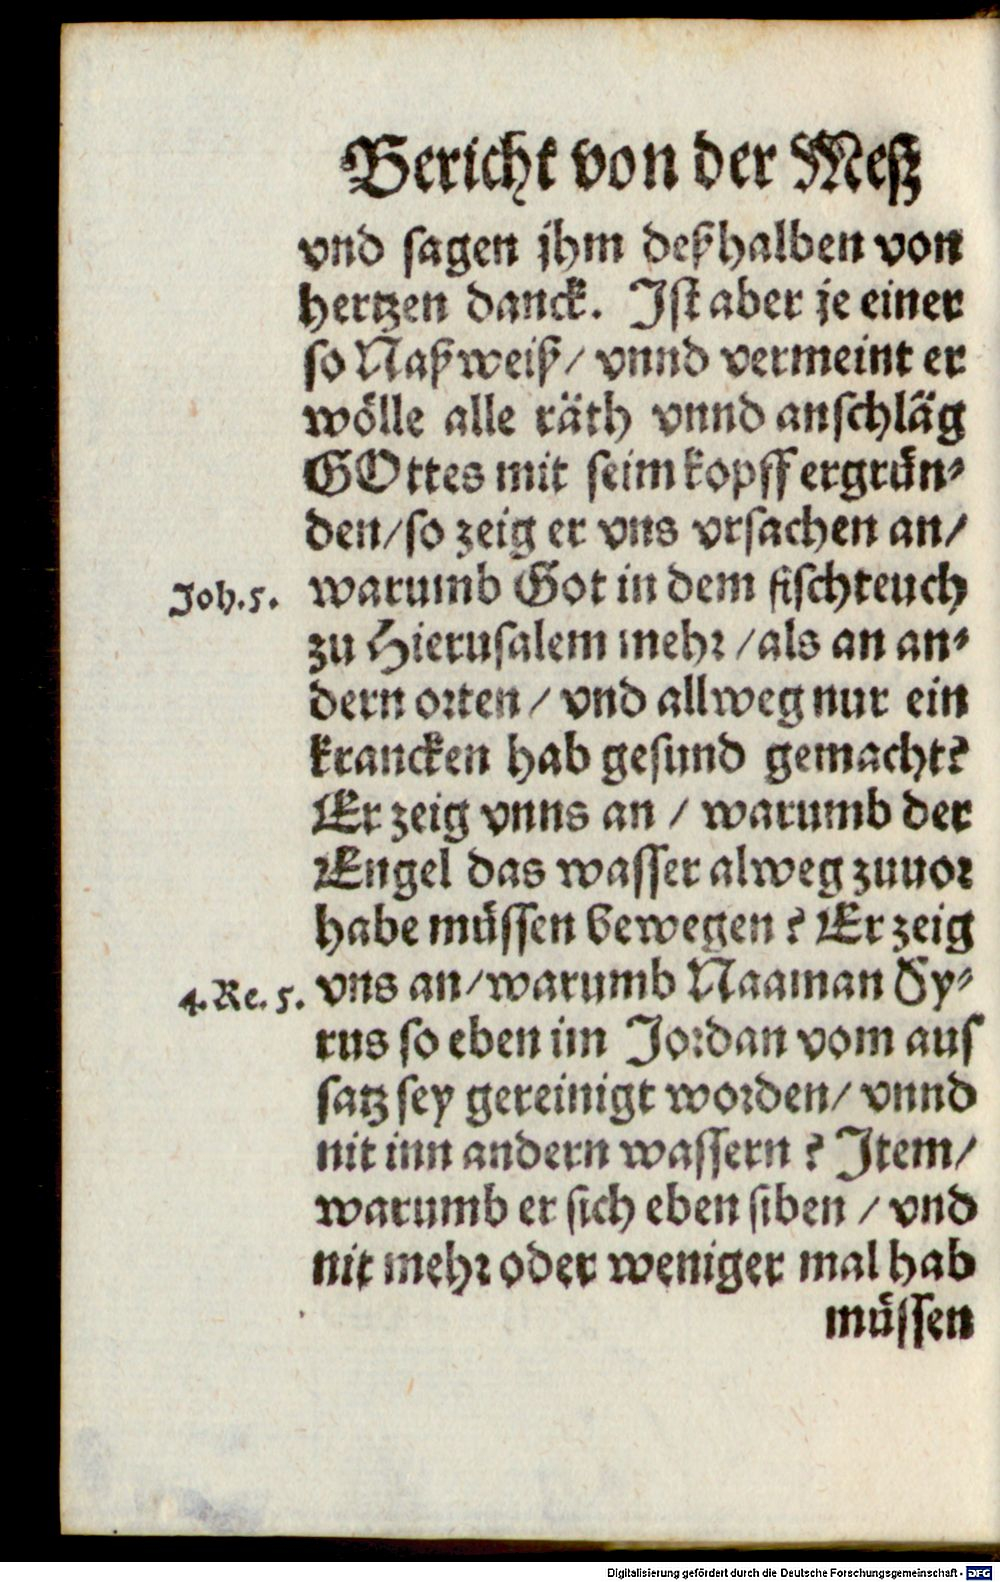 Bericht von der Meß
vnd sagen jhm deßhalben von
hertzen danck. Ist aber je einer
so Naßweiß/ vnnd vermeint er
wölle alle räth vnnd anschläg
GOttes mit seim kopff ergrün-
den/so zeig er vns vrsachen an/
Joh.5. warumb Got in dem fischteuch
zu Hierusalem mehr /als an an-
dern orten / vnd allweg nur ein
krancken hab gesund gemacht?
Er zeig vnns an / warumb der
Engel das wasser alweg zuuor
habe müssen bewegen ? Er zeig
4.Re.5. vns an/warumb Naaman Sy-
rus so eben im Jordan vom aus
satz sey gereinigt worden/ vnnd
nit inn andern wassern ? Item/
warumb er sich eben siben / vnd
nit mehr oder weniger mal hab
müssen
Digitalisierung gefördert durch die Deutsche Forschungsgemeinschaft - DFG